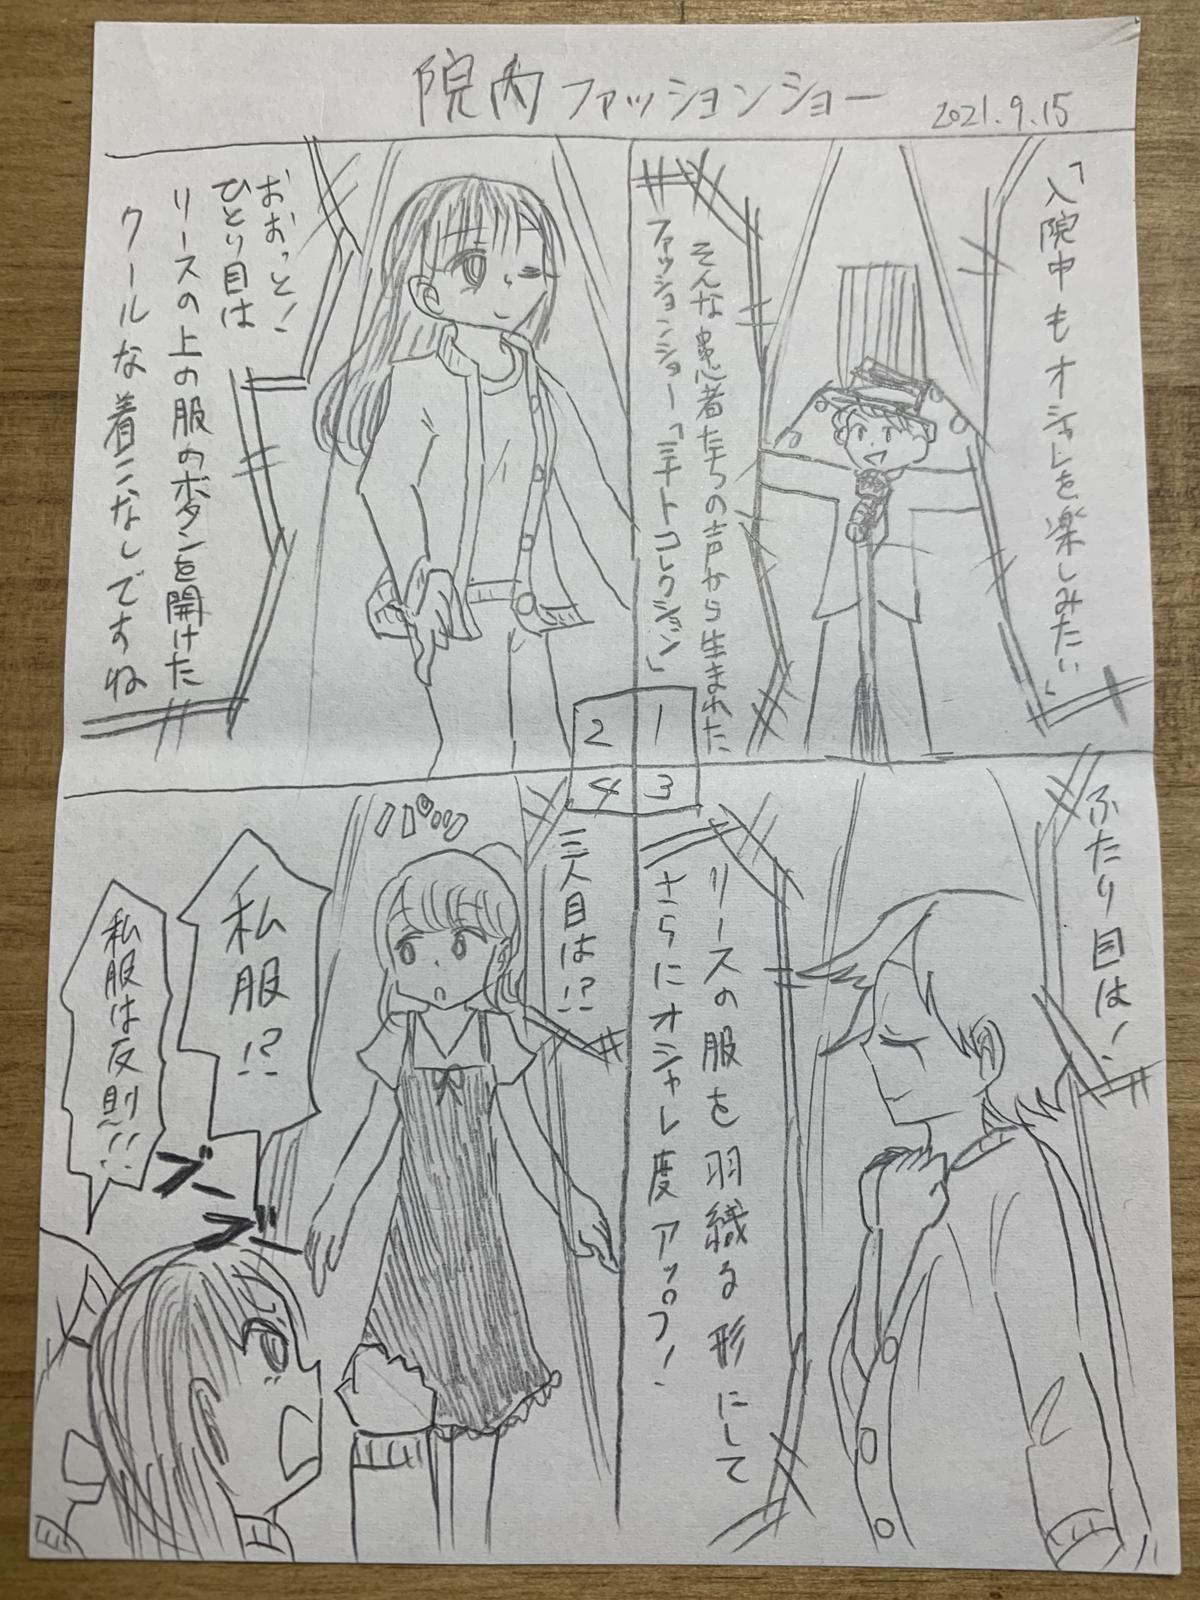 院内ファッションショー
2021.9.15
「入院中もオシャレを楽しみたい」
そんな患者たちの声から生まれた
ファッションショー「ミナトコレクション」
おおっと!
ひとり目は
リースの上の服のボタンを開けた
クールな着こなしですね
1
2
3
4
ふたり目は!
リースの服を羽織る形にして
さらにオシャレ度アップ!
三人目は!?
私服!?
私服は反則!!
ブー
ブー